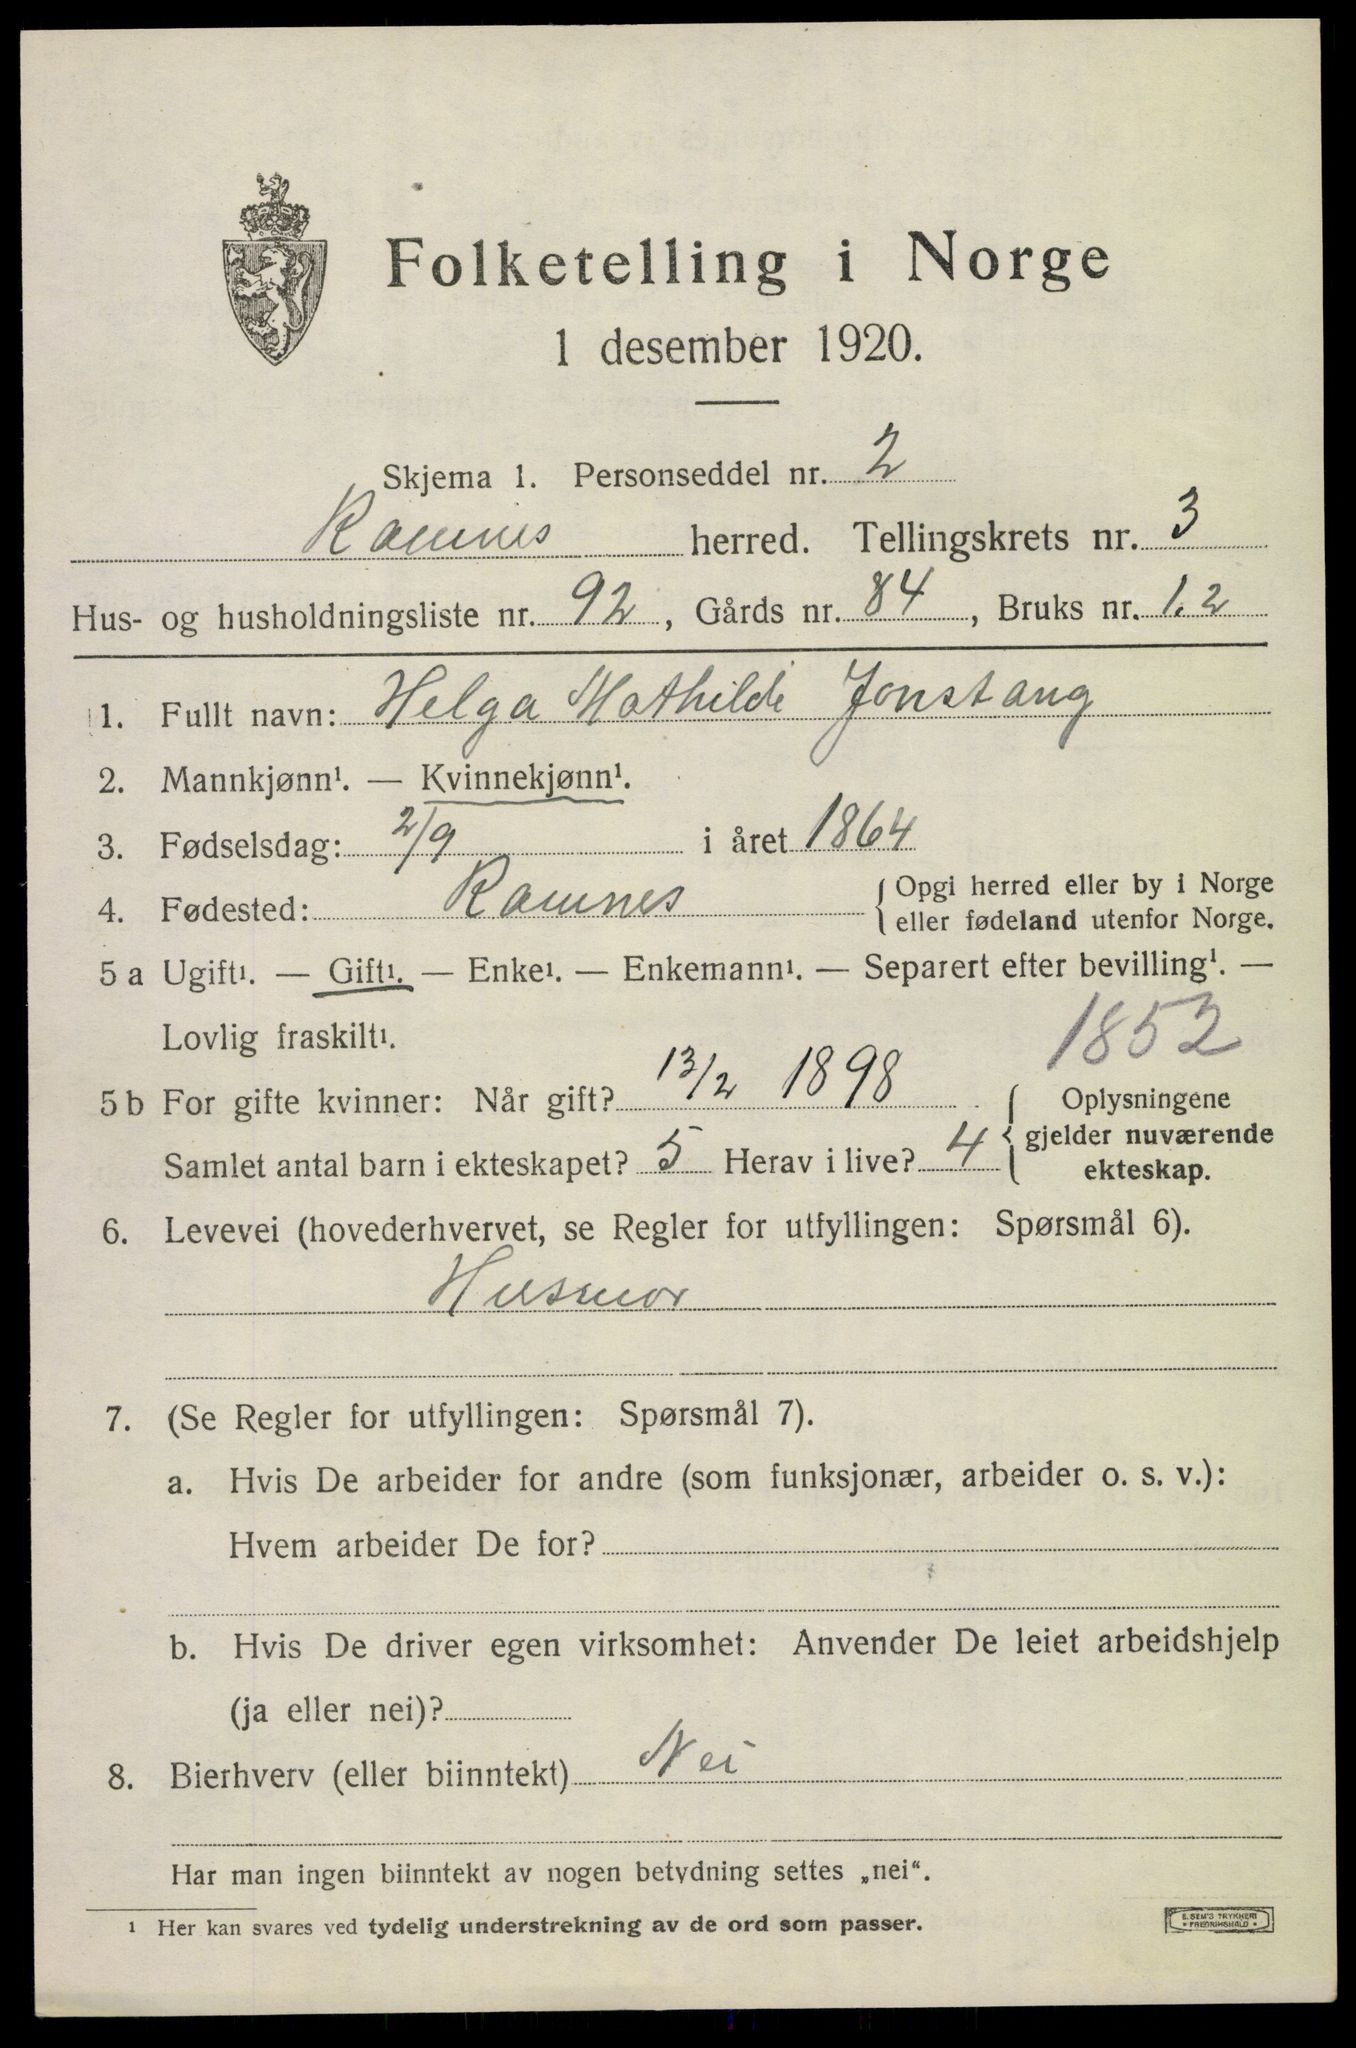 Folketelling i Norge
1 desember 1920.
Skjema 1. Personseddel nr. 2
Ramnes herred. Tellingskrets nr. 3
Hus- og husholdningsliste nr. 92, Gårds nr. 84, Bruks nr. 1.2
1. Fullt navn: Helga Mathilde Jonstang
2. Mannkjønn¹. — Kvinnekjønn¹.
3. Fødselsdag: 2/9 i året 1864
4. Fødested: Ramnes { Opgi herred eller by i Norge
eller fødeland utenfor Norge.
5 a Ugift¹. — Gift¹. — Enke¹. — Enkemann¹. — Separert efter bevilling¹. —
Lovlig fraskilt¹. 1852
5 b For gifte kvinner: Når gift? 13/2 1898
Samlet antal barn i ekteskapet? 5 Herav i live? 4
{ Oplysningene
gjelder nuværende
ekteskap.
6. Levevei (hovederhvervet, se Regler for utfyllingen: Spørsmål 6).
Husmor
7. (Se Regler for utfyllingen: Spørsmål 7).
a. Hvis De arbeider for andre (som funksjonær, arbeider o. s. v.):
Hvem arbeider De for?
b. Hvis De driver egen virksomhet: Anvender De leiet arbeidshjelp
(ja eller nei)?
8. Bierhverv (eller biinntekt) Nei
Har man ingen biinntekt av nogen betydning settes „nei“.
¹ Her kan svares ved tydelig understrekning av de ord som passer.
E. SEM'S TRYKKERI
* FREDRIKSHALD *